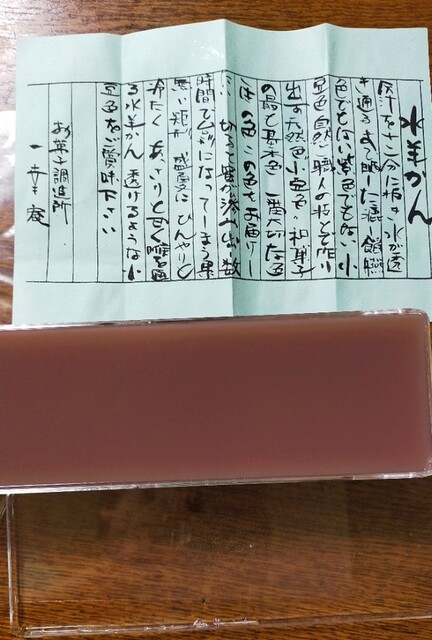 水羊かん
灰汁を十二分に抜き水が透
き通るまで晒した漉し餡臙脂
色でもない紫色でもない小
豆色自然と職人の技とで作り
出す天然色小豆色 和菓子
の最も基本色 一番大切な色
この色をお届けし
切ると蜜が滲み出し数
時間で台なしになってしまう果
無い 盛夏に ひんやりと
冷たく あっさりと甘く喉を通
る水羊かん 透けるような小
豆色をご賞味下さい
お菓子調進所
一幸庵